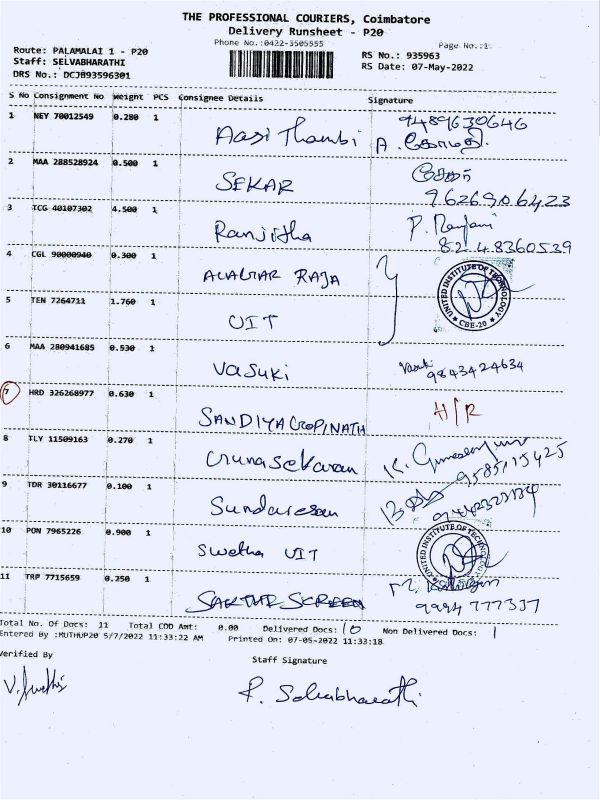 THE PROFESSIONAL COURIERS, Coimbatore
Delivery Runsheet - P20
Phone No.:0422-3505555
Page No.:1
Route: PALAMALAI 1 - P20
Staff: SELVABHARATHI
DRS No.: DCJB93596301
RS No.: 935963
RS Date: 07-May-2022
S No Consignment No Weight PCS Consignee Details Signature
1 NEY 70012549 0.280 1 Aasi Thambi 9489630646
A. கோமதி
2 MAA 288528924 0.500 1 SEKAR
9626906423
3 TCG 40107302 4.500 1 Ranjitha P. Ranjani
8248360539
4 CGL 90000940 0.300 1 ALAGAR RAJA
UNITED INSTITUTE OF TECHNOLOGY
* CBE-20 *
5 TEN 7264711 1.760 1 UIT
6 MAA 280941685 0.530 1 Vasuki Vasuki
9843424634
7 HRD 326268977 0.630 1 SANDIYA GOPINATH H/R
8 TLY 11509163 0.270 1 Gunasekaran K. Gunasekaran
9585115425
9 TDR 30116677 0.100 1 Sundaresan
10 PON 7965226 0.900 1 Swetha UIT
UNITED INSTITUTE OF TECHNOLOGY
11 TRP 7715659 0.250 1 SAKTHI SCREEN
9994777337
Total No. Of Docs: 11 Total COD Amt: 0.00 Delivered Docs: 10 Non Delivered Docs: 1
Entered By :MUTHUP20 5/7/2022 11:33:22 AM Printed On: 07-05-2022 11:33:18
Verified By
Staff Signature
P. Selvabharathi